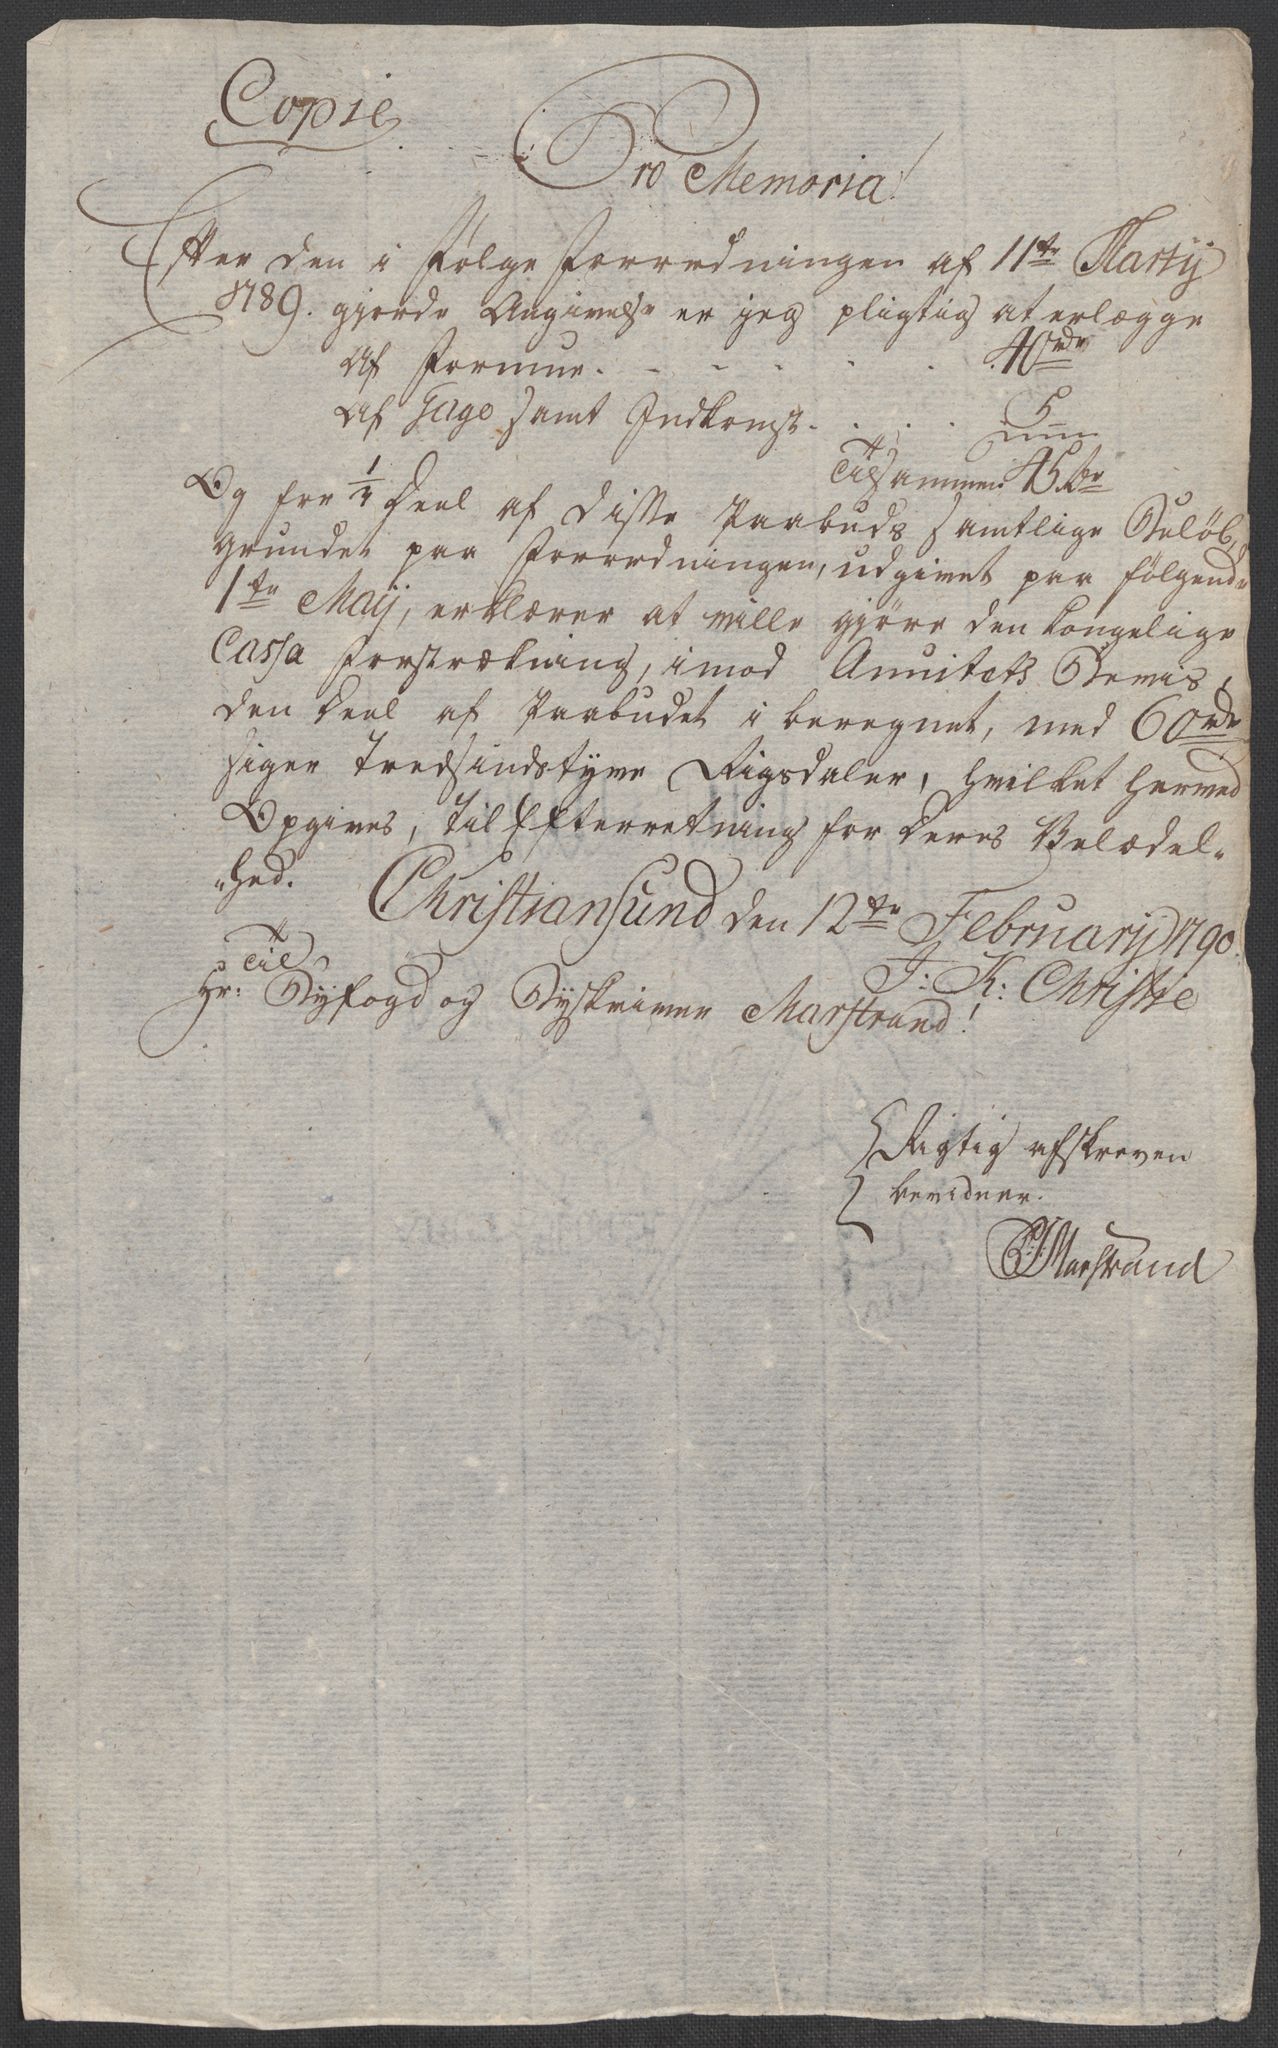 Copie
Pro Memoria!
Efter den i Følge Forordningen af 11te Martij
1789. gjorde Angivelse er jeg pligtig at erlægge
Af Formue . . . . . . 40 rdr
Af Gage samt Indkomst . . . . 5
Tilsammen 45
Og for 1/4 Deel af disse Paabuds samtlige Beløb,
grundet paa Forordningen, udgivet paa følgende
1te Maij, erklærer at ville gjøre den kongelige
Cassa Forstrækning, imod Annuitets Bevis,
den Deel af Paabudet i beregnet, med 60 rdr
siger Tredsindstyve Rigsdaler, hvilket herved
Opgives, til Efterretning for Deres Velædel-
"hed.
Christiansund den 12te Februarij 1790.
J: K: Christie
Til
Hr: Byfogd og Byskriver Marstrand!
Rigtig afskreven
bevidner.
Marstrand